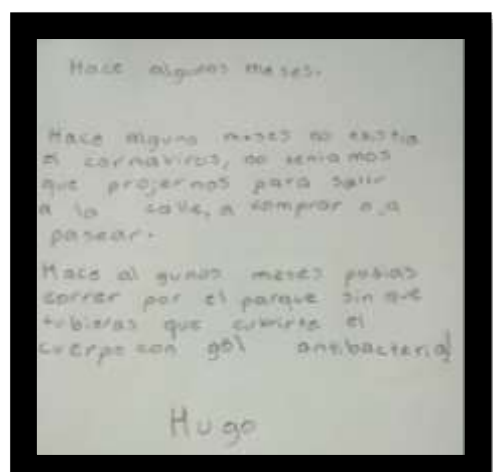 Hace algunos meses.
Hace alguno meses no existia
el cornavirus, no teniamos
que projernos para salir
a la calle, a comprar o a
pasear.
Hace al gunos meses podias
correr por el parque sin que
tubieras que cubrirte el
cuerpo con gel antibacterial
Hugo